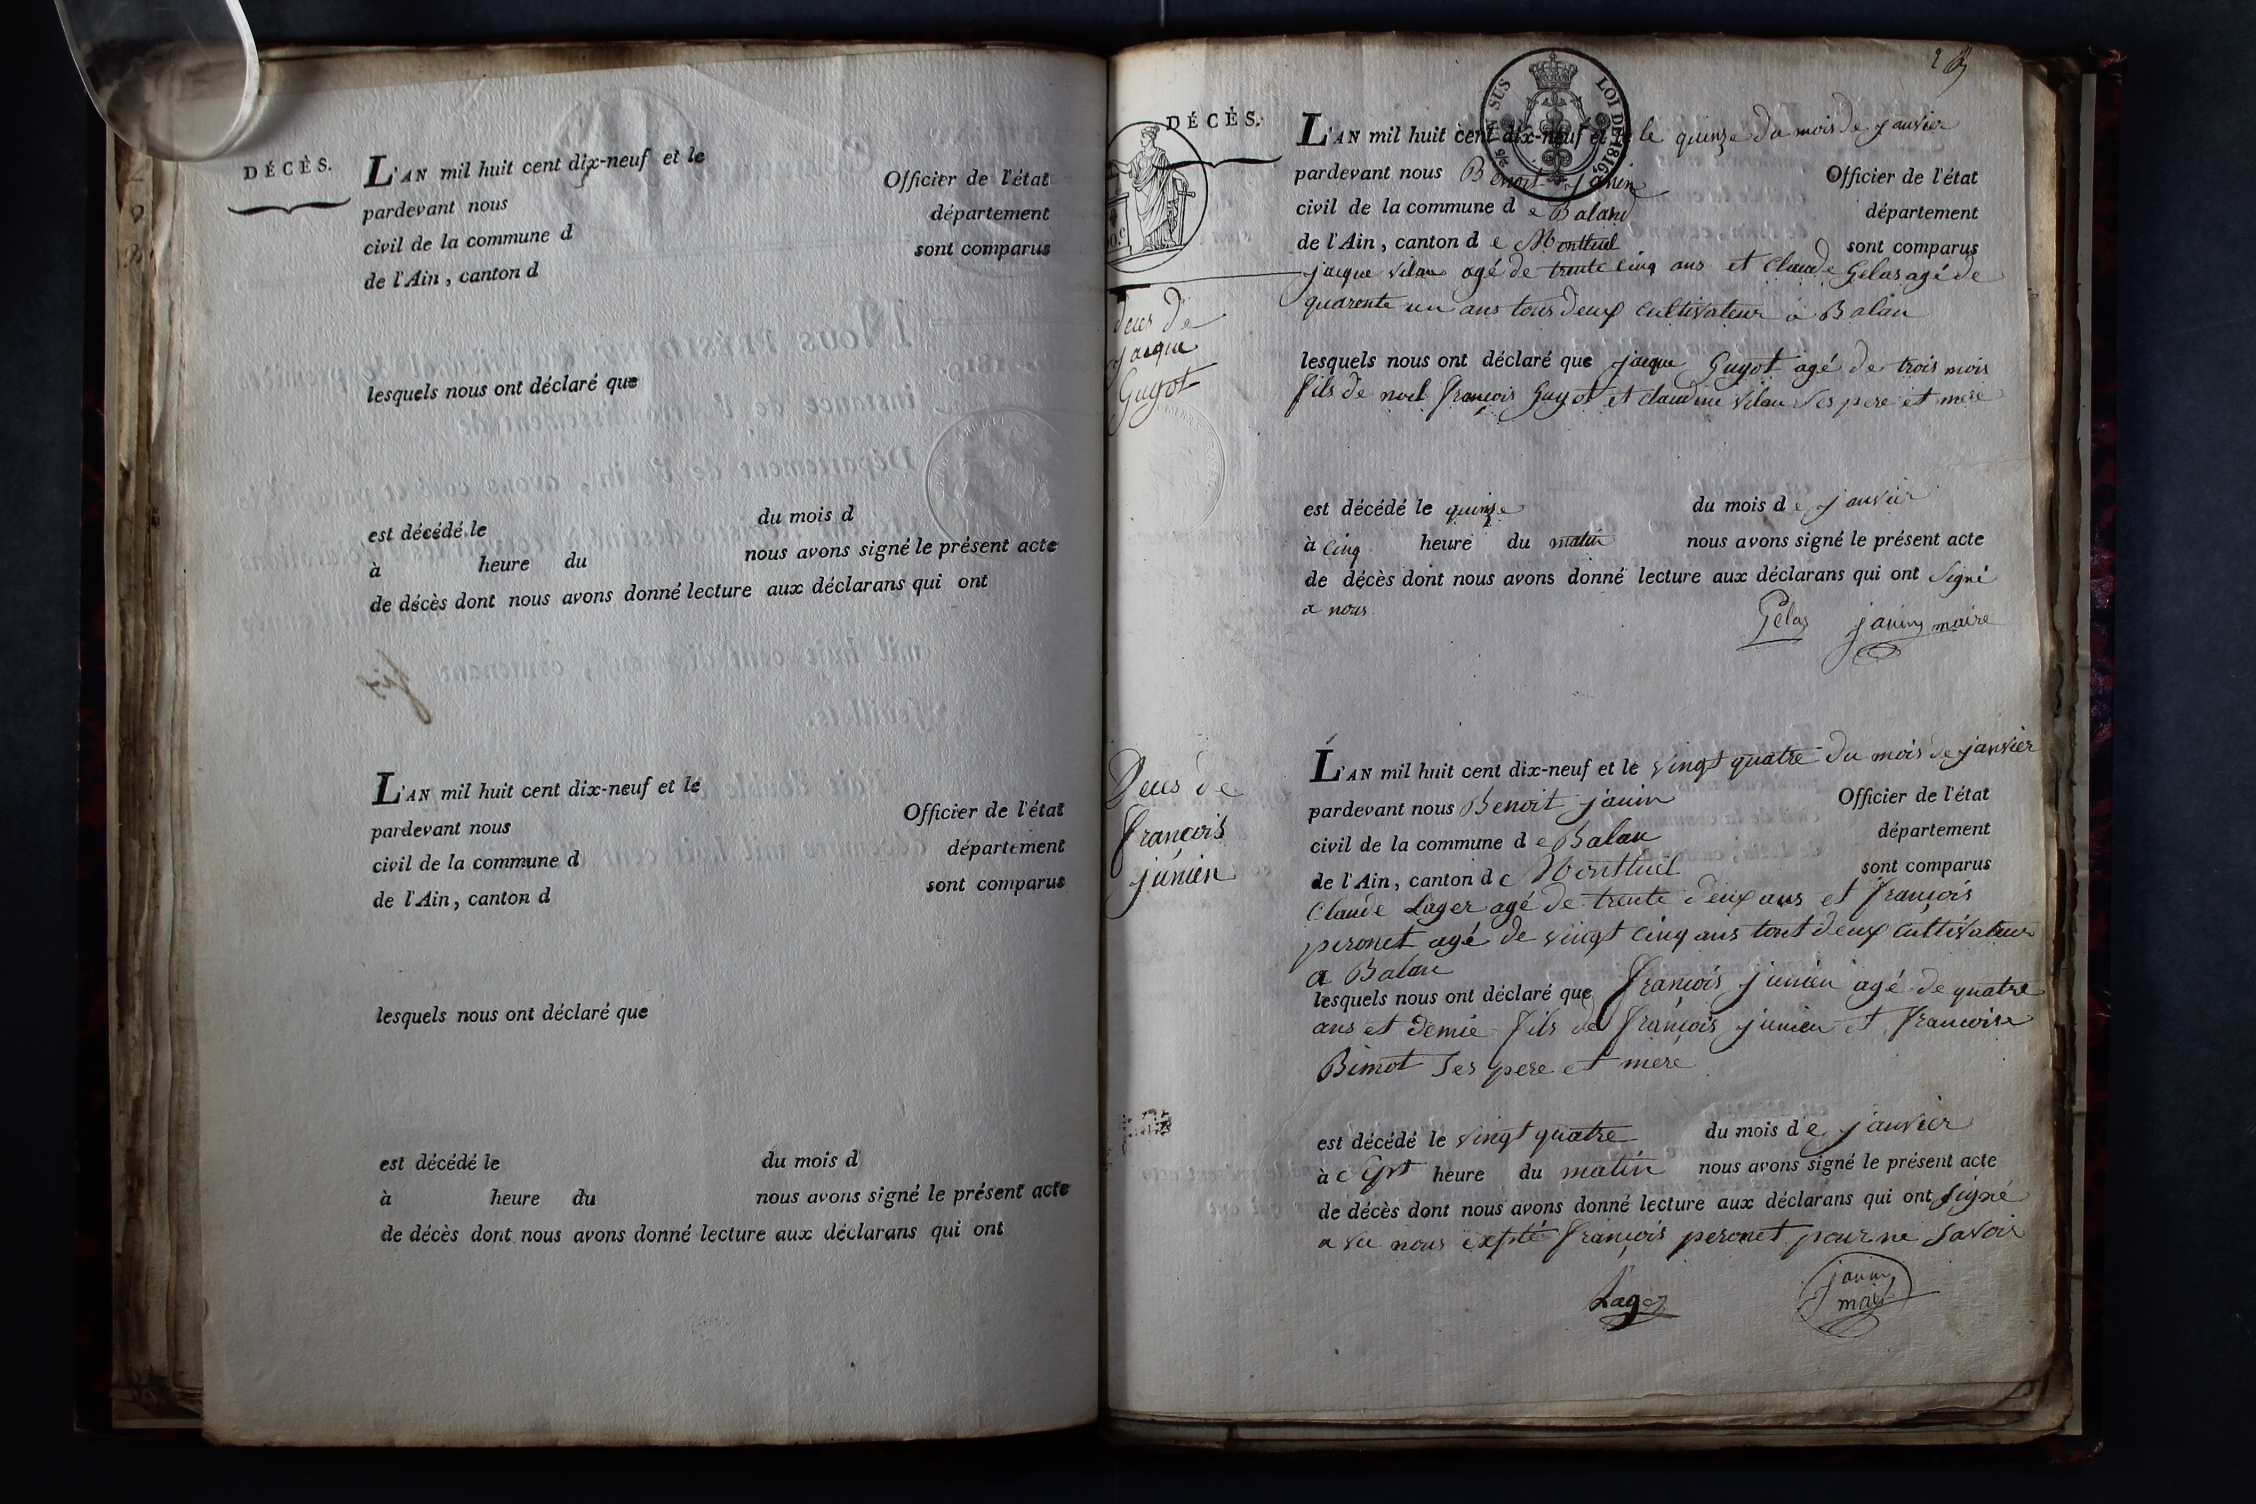 DÉCÈS.
L'AN mil huit cent dix-neuf et le
pardevant nous Officier de l'état
civil de la commune d département
de l'Ain, canton d sont comparus
lesquels nous ont déclaré que
est décédé le du mois d
à heure du nous avons signé le présent acte
de décès dont nous avons donné lecture aux déclarans qui ont
L'AN mil huit cent dix-neuf et le
pardevant nous Officier de l'état
civil de la commune d département
de l'Ain, canton d sont comparus
lesquels nous ont déclaré que
est décédé le du mois d
à heure du nous avons signé le présent acte
de décès dont nous avons donné lecture aux déclarans qui ont
DÉCÈS.
EN SUS LOI DE 1816
L'AN mil huit cent dix-neuf et le quinze du mois de janvier
pardevant nous Benoit janin Officier de l'état
civil de la commune de Balan département
de l'Ain, canton de Montluel sont comparus
jacque vilan agé de trente cinq ans et Claude Gelas agé de
quarente un ans tous deux cultivateur a Balan
deces de
jacque
Guyot
lesquels nous ont déclaré que jacque Guyot agé de trois mois
fils de noel françois Guyot et claudine vilan ses pere et mere
est décédé le quinze du mois de janvier
à cinq heure du matin nous avons signé le présent acte
de décès dont nous avons donné lecture aux déclarans qui ont signé
a nous
Gelas janin maire
Deces de
françois
junien
L'AN mil huit cent dix-neuf et le vingt quatre du mois de janvier
pardevant nous Benoit janin Officier de l'état
civil de la commune de Balan département
de l'Ain, canton de Montluel sont comparus
Claude Lager agé de trente deux ans et françois
peronet agé de vingt cinq ans tout deux cultivateur
a Balan
lesquels nous ont déclaré que françois junien agé de quatre
ans et demie fils de françois junien et francoise
Bimot ses pere et mere
est décédé le vingt quatre du mois de janvier
à sept heure du matin nous avons signé le présent acte
de décès dont nous avons donné lecture aux déclarans qui ont signé
a nous françois peronet pour ne savoir
Lager janin
maire